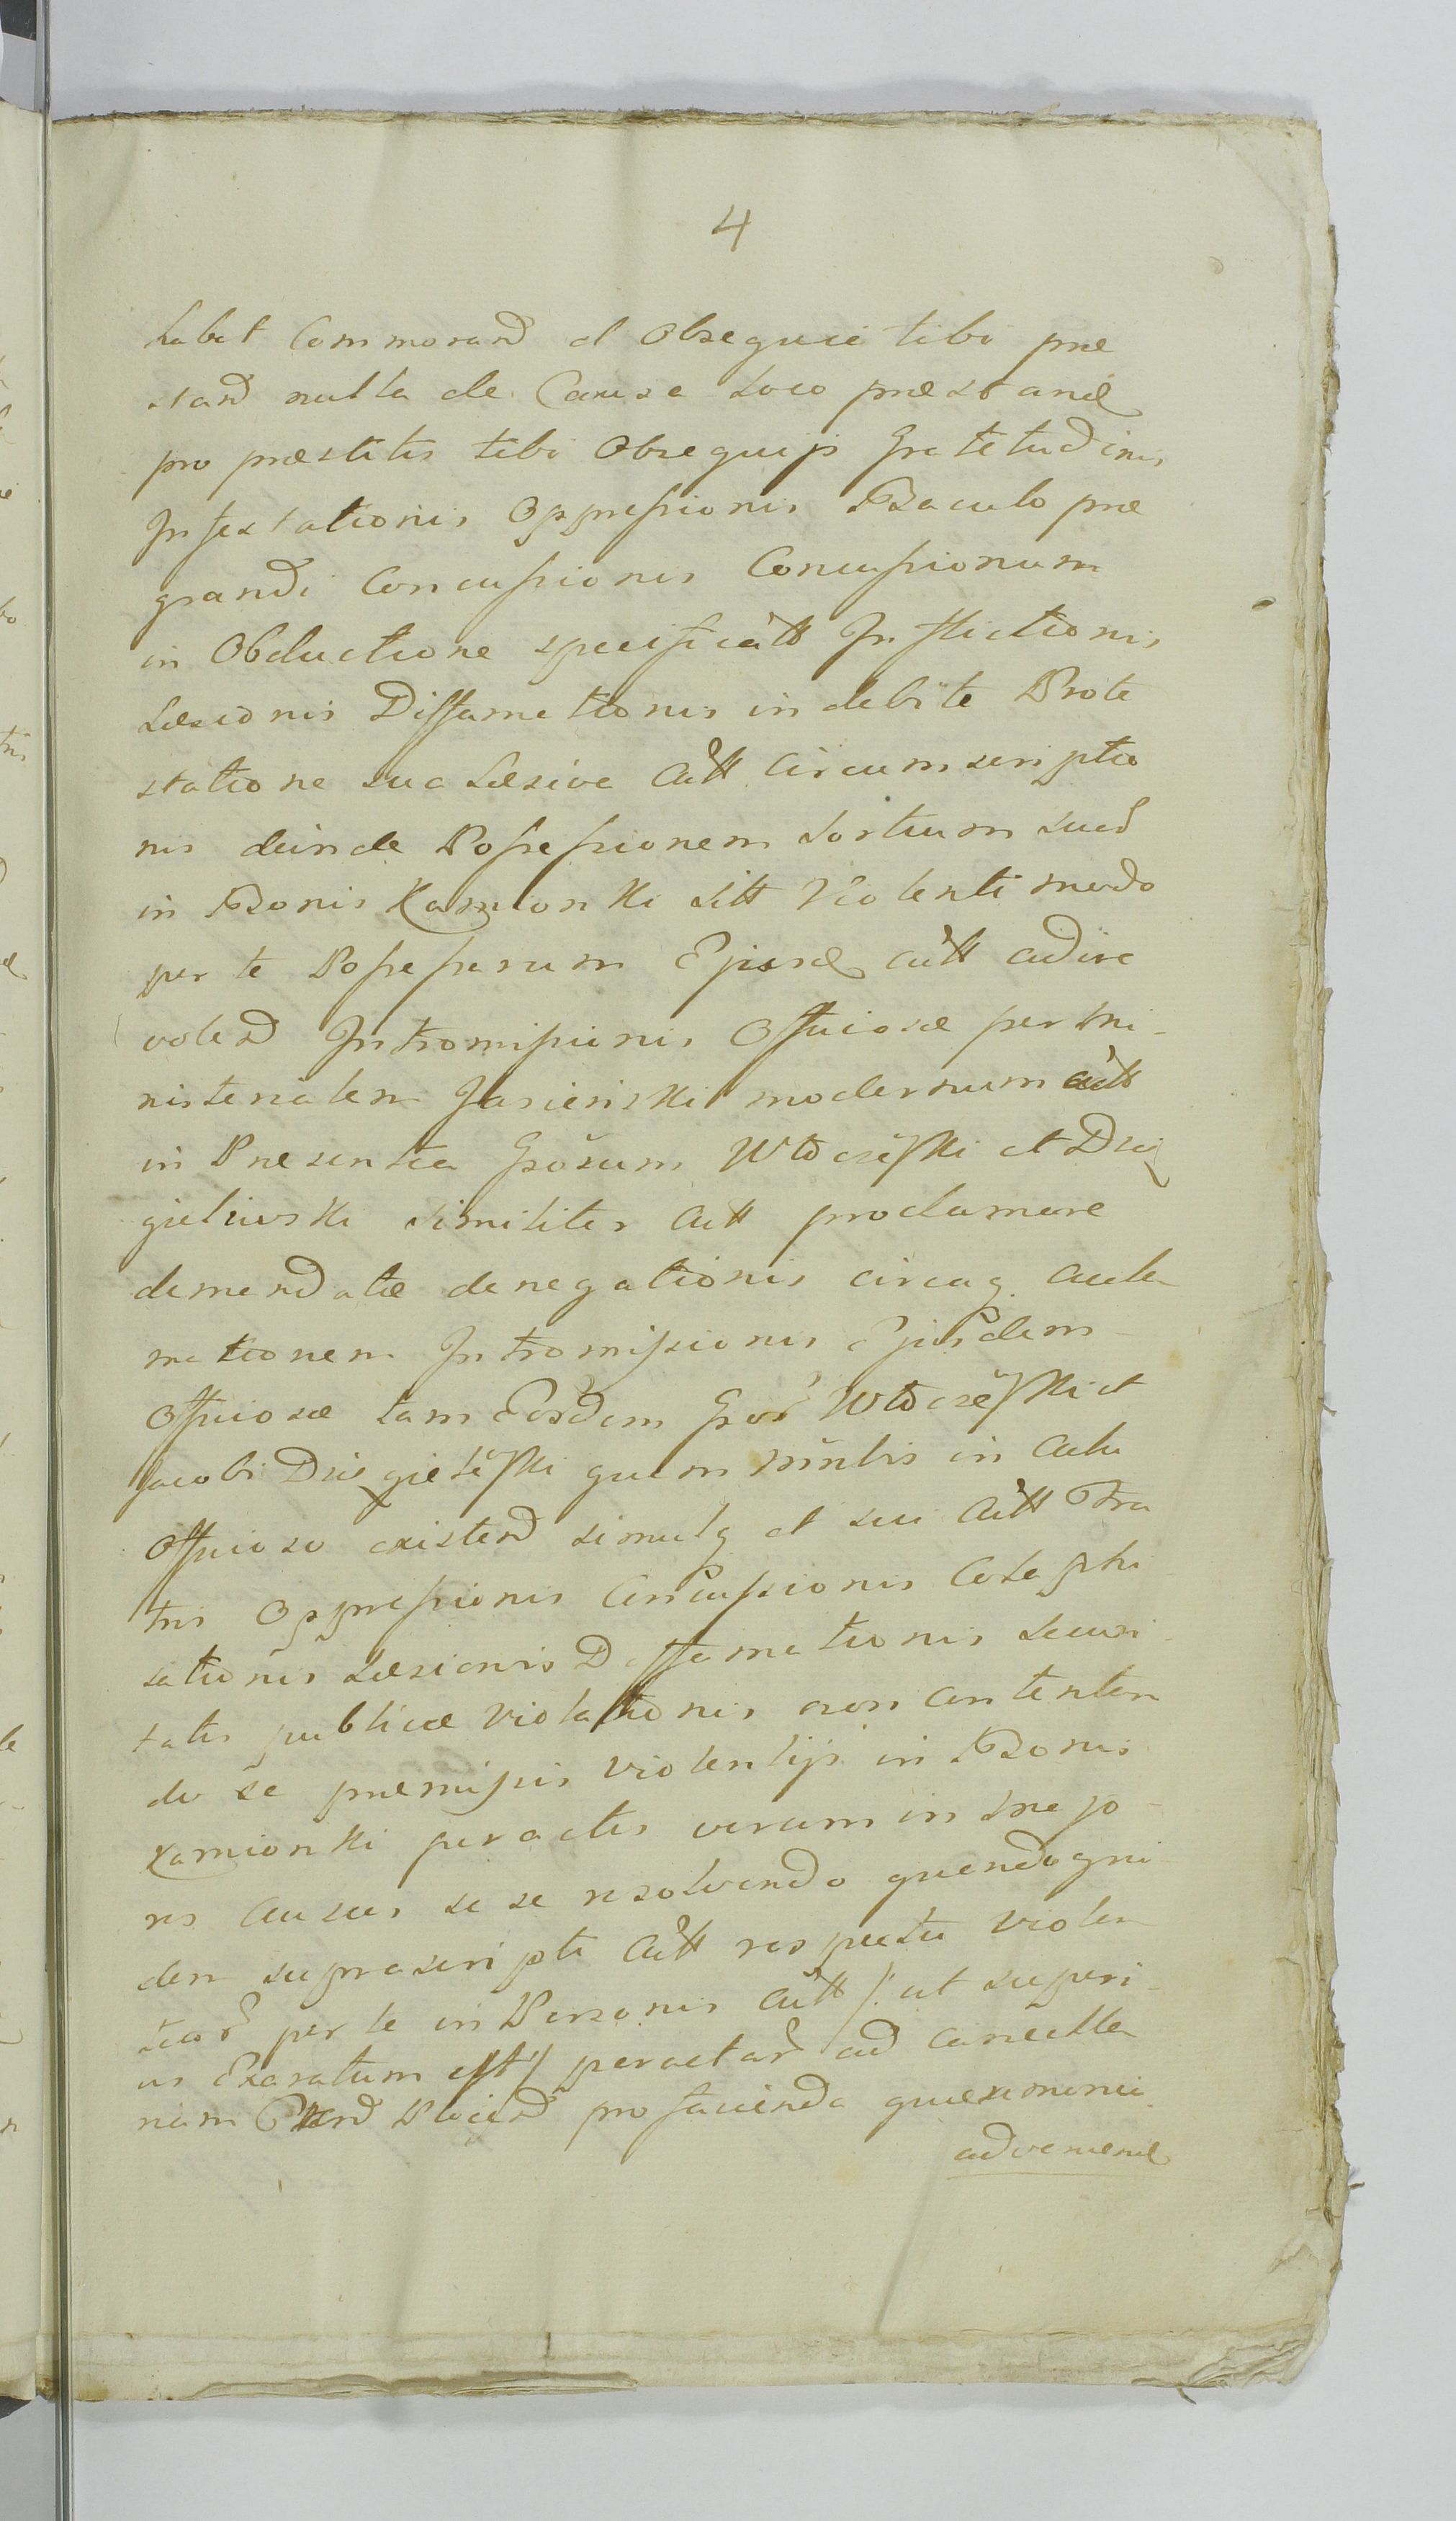 4
habet Commorand et Obsequii tibi præ
stand nulla de Causa Loco præstand
pro præstitis tibi Obsequijs Gratitudinis
Infestationis Oppressionis Baculo præ
grandi Concussionis Concussionum
in Obductione specificatt Inflictionis
Læsionis Diffamationis indebite Prote
statione sua Læsiva Actt circumscriptio
nis deinde Possessionem Sortium suar
in Bonis Kamionki sitt Violenti modo
per te Possessarum Ejusd actt adire
volend Intromissionis Officiosæ per Mi-
nisterialem Jasienski modernum actt
in Præsentia Grosum Włoczesski et Dzię
gielewski similiter Actt proclamare
demandatæ denegationis circaq accla
mationem Intromissionis Ejusdem
Officiosæ tam Eordem Gror Włoczesski et
Jacobi Dzięgielesski quam Mintris in Actu
Officioso existend simulq et sui Actt Fra
tris Oppressionis Concussionis Colaphi
sationis Læsionis Diffamationis Securi
tatis publicæ violationis non conten
do se præmissis violentijs in Bonis
Kamionki peractis verum in Majo
res ausus se se resolvendo quando
den suprascripti Actt respectu violen
tiar per te in Personis Actt /: ut superi-
us Exaratum est :/ peractar ad Cancella
riam pro facienda
advenien